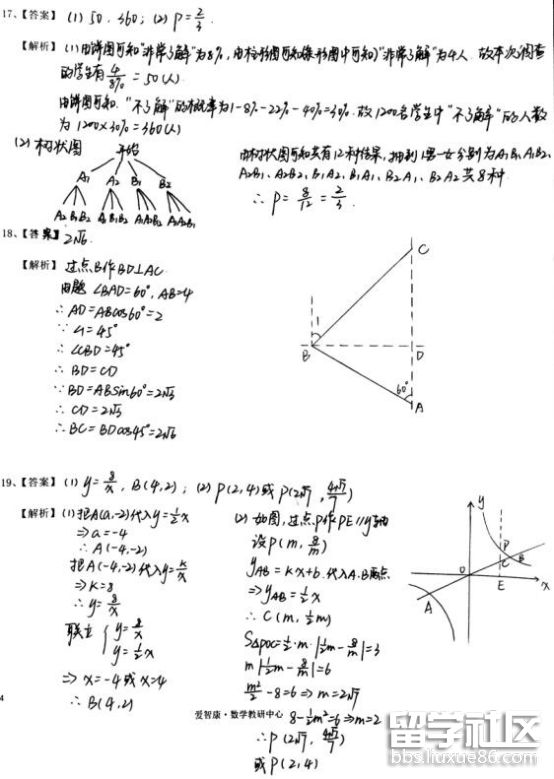 17、【答案】(1) 50, 360; (2) P=2/3.
【解析】(1)由饼图可知"非常了解"为8%, 由柱形图可知(条形图中可知)"非常了解"为4人, 故本次调查
的学生有 4/8% = 50(人)
由饼图可知, "不了解"的概率为1-8%-22%-40%=30%, 故1200名学生中"不了解"的人数
为 1200×30%=360(人)
(2) 树状图
开始
A1 A2 B1 B2
A2 B1 B2 A1 B1 B2 A1 A2 B2 A1 A2 B1
由树状图可知共有12种结果, 抽到1男一女分别为A1B1, A1B2,
A2B1, A2B2, B1A2, B1A1, B2A1, B2A2 共8种
∴ P= 8/12 = 2/3.
18、【答案】2√6.
【解析】过点B作BD⊥AC
由题 ∠BAD=60°, AB=4
∴ AD=ABcos60°=2
∵ ∠1=45°
∴ ∠CBD=45°
∴ BD=CD
∵ BD=ABsin60°=2√3
∴ CD=2√3
∴ BC=BDcos45°=2√6
C
1
B
D
60°
A
19、【答案】(1) y=8/x, B(4,2); (2) P(2,4)或P(2√7, 4√7/7)
【解析】(1)把A(a,-2)代入y=1/2x
⇒a=-4
∴ A(-4,-2)
把A(-4,-2)代入y=k/x
⇒k=8
∴ y=8/x
联立 { y=8/x
y=1/2x
⇒ x=-4或x=4
∴ B(4,2)
(2) 如图, 过点P作PE//y轴
设P(m, 8/m)
yAB=kx+b 代入A、B两点
⇒yAB=1/2x
∴ C(m, 1/2m)
S△POC=1/2·m·|1/2m-8/m|=3
m|1/2m-8/m|=6
m²/2-8=6⇒m=2√7
8-1/2m²=6⇒m=2
∴P(2√7, 4√7/7)
或P(2,4)
y
P
C
B
O
E
x
A
4
爱智康·数学教研中心
留学社区
bbs.liuxue86.com